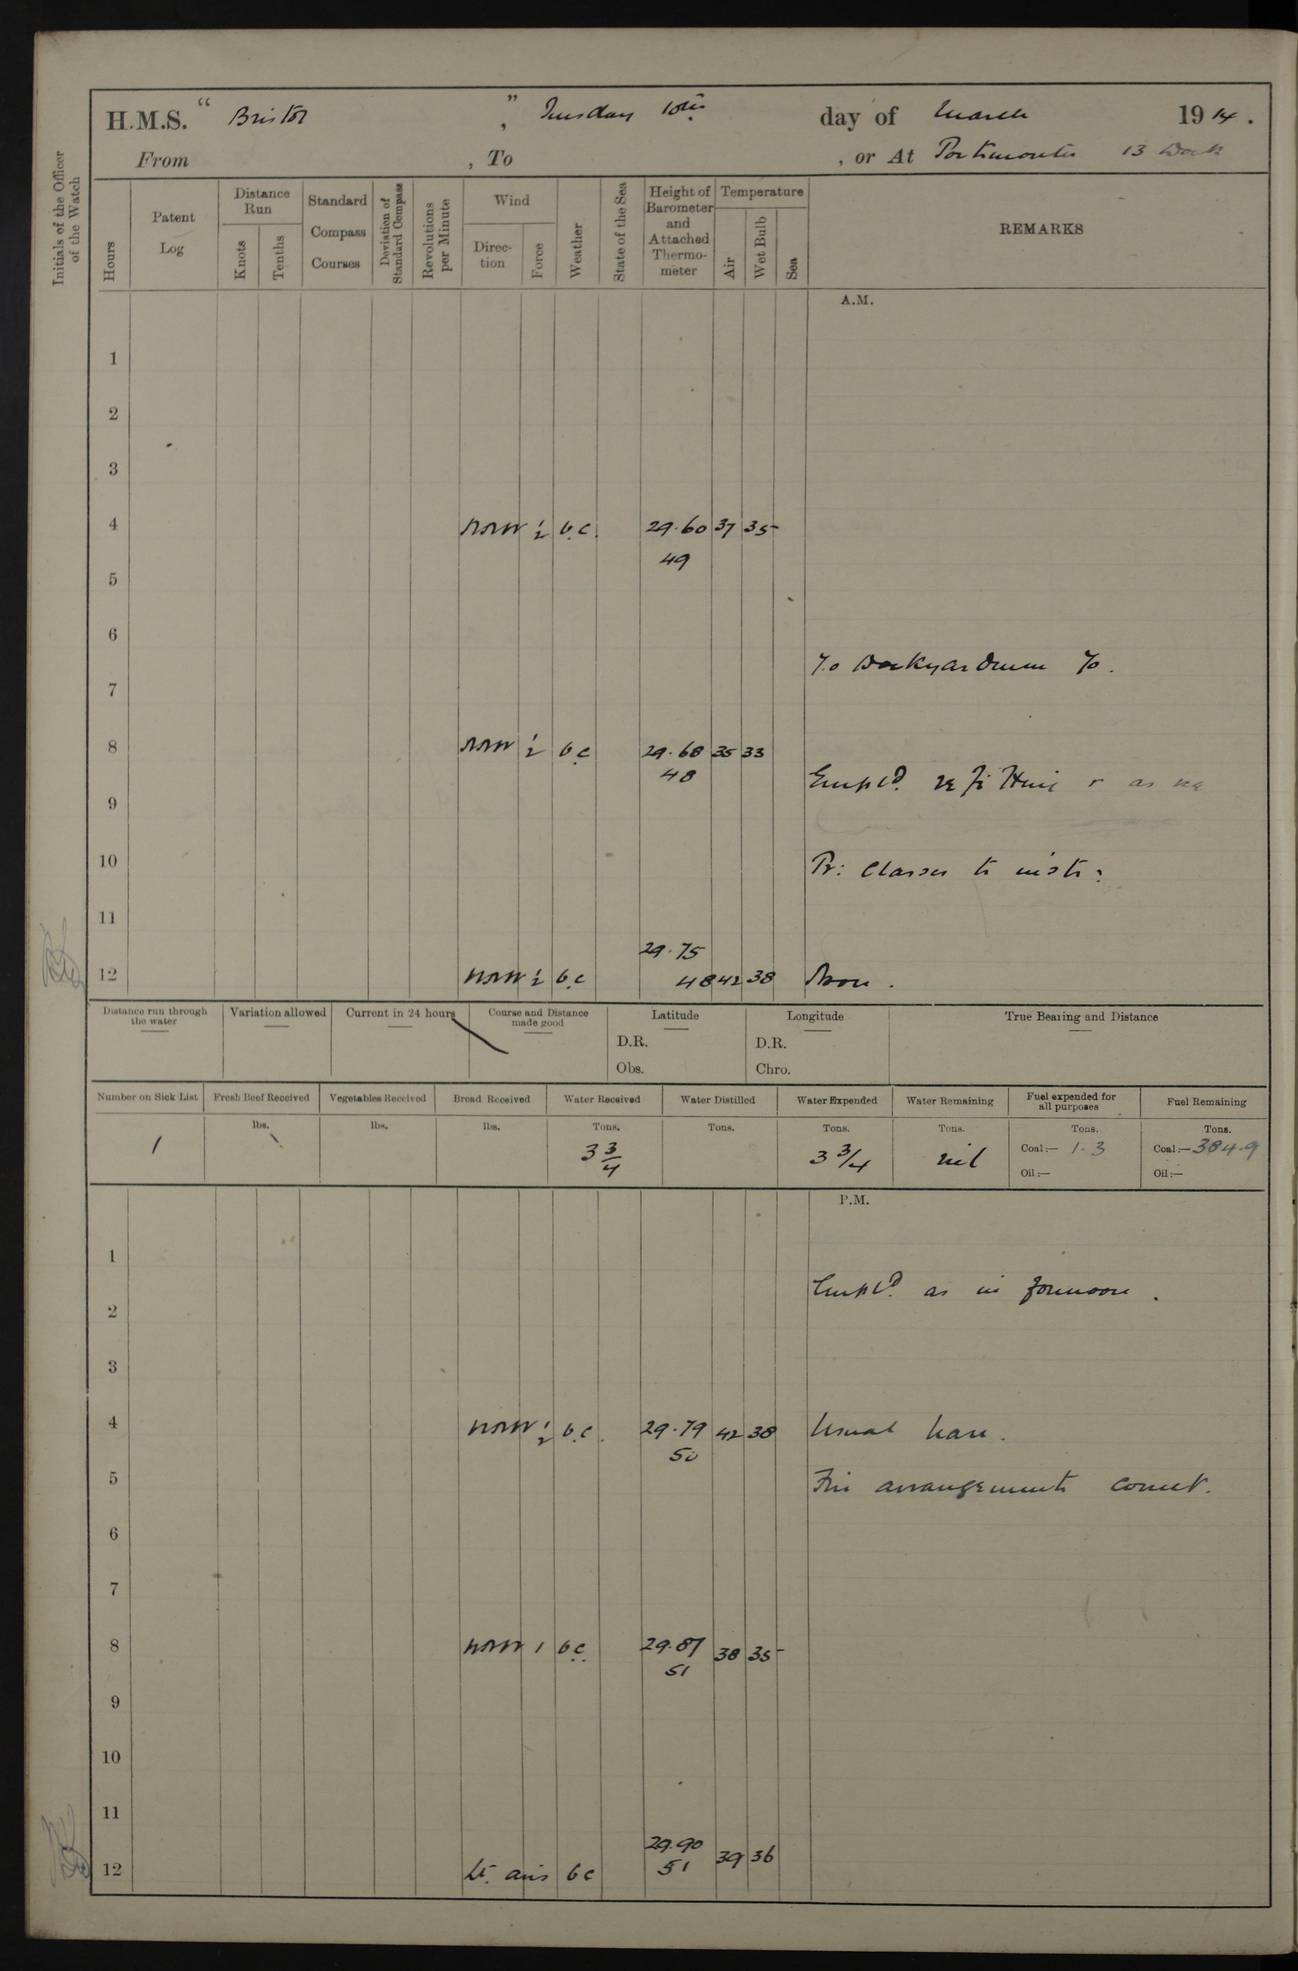 H.M.S. “ Bristol ” , Tuesday 10th day of March 19 14 .
From , To , or At Portsmouth 13 Dock
Initials of the Officer of the Watch
Hours
Patent Log
Distance Run
Knots
Tenths
Standard Compass Courses
Deviation of Standard Compass
Revolutions per Minute
Wind
Direc-tion
Force
Weather
State of the Sea
Height of Barometer and Attached Thermo-meter
Temperature
Air
Wet Bulb
Sea
REMARKS
A.M.
1
2
3
4 NNW 1/2 b.c. 29.60 37 35
49
5
6
7.0 Dockyardmen
7
8 NNW 1/2 b.c 29.68 35 33
48
Empld. refitting as
9
10 Br: Classes to instr:
11
29.75
12 NNW 1/2 b.c 48 42 38 Noon .
Distance run through the water
Variation allowed
Current in 24 hours
Course and Distance made good
Latitude
D.R.
Obs.
Longitude
D.R.
Chro.
True Bearing and Distance
Number on Sick List Fresh Beef Received Vegetables Received Bread Received Water Received Water Distilled Water Expended Water Remaining Fuel expended for all purposes Fuel Remaining
lbs. lbs. lbs. Tons. Tons. Tons. Tons. Tons. Tons.
1 3 3/4 3 3/4 nil Coal:— 1.3 Coal:— 384.9
Oil:— Oil:—
P.M.
1
Empld. as in forenoon .
2
3
4 NNW 1/2 b.c. 29.79 42 38 Usual leave .
50
5 Fire arrangements correct.
6
7
8 NNW 1 b.c. 29.87 38 35
51
9
10
11
29.90
12 Lt. airs bc 51 39 36